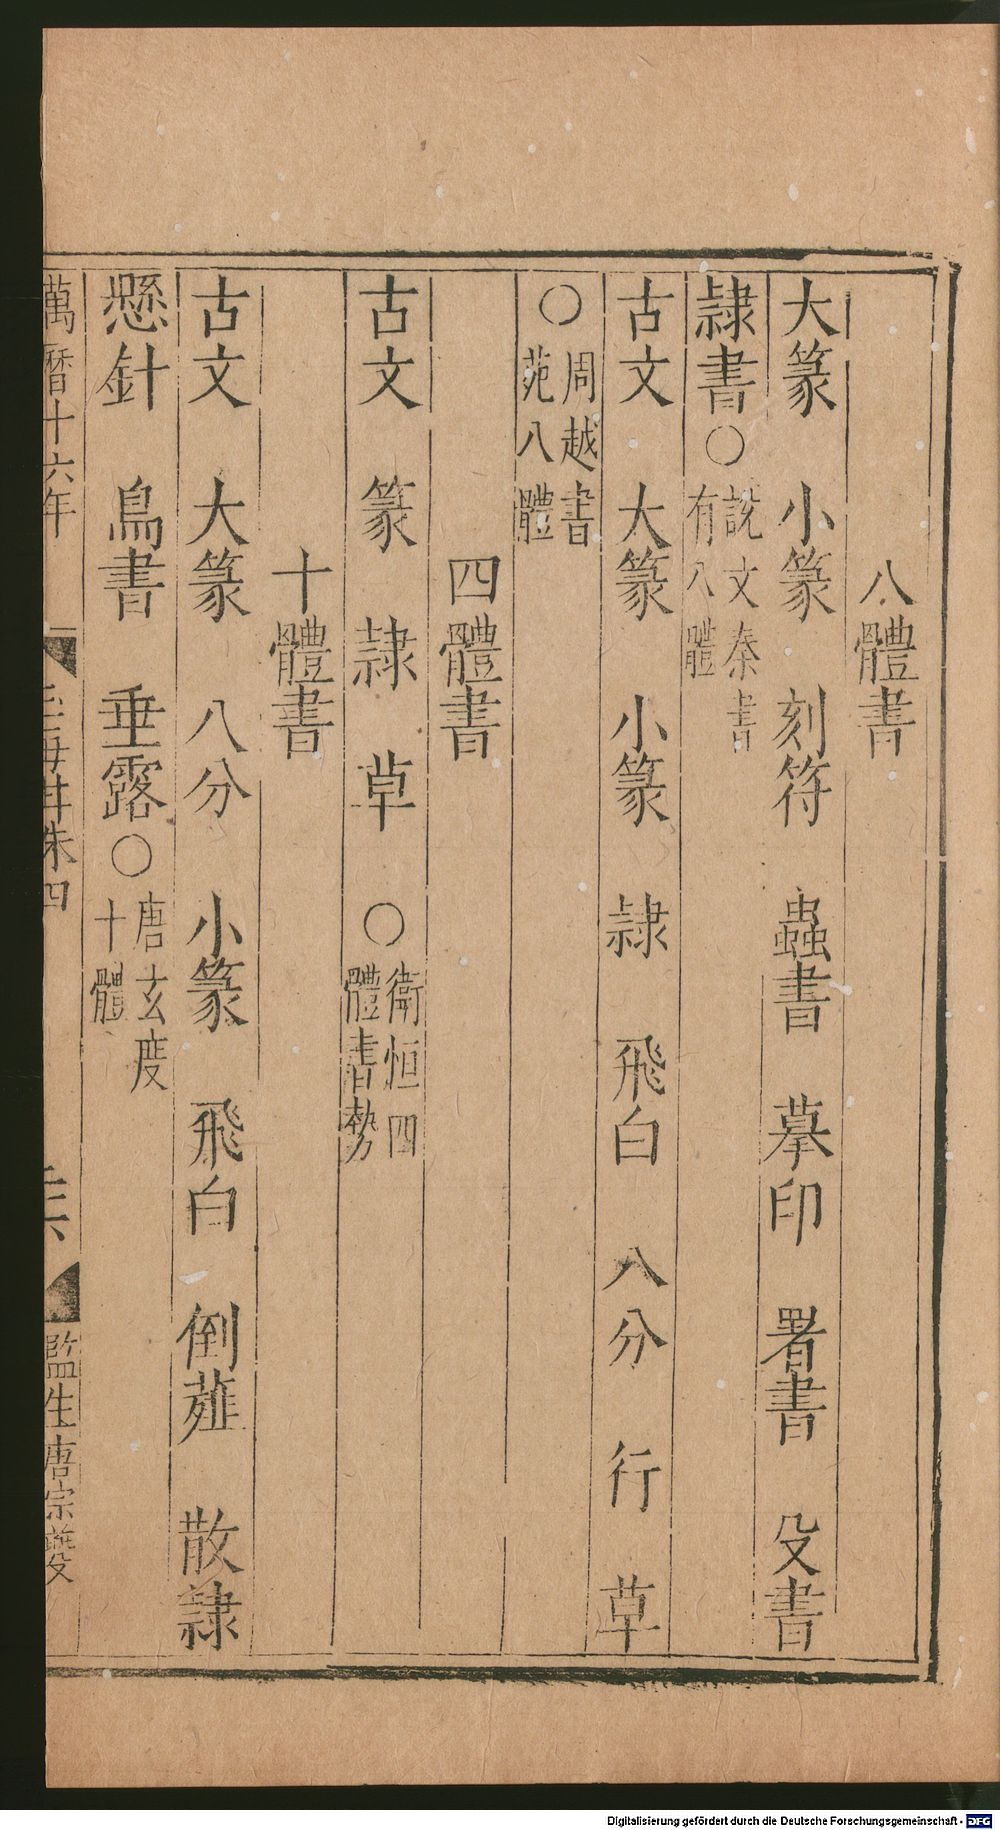 八體書
大篆　小篆　刻符　蟲書　摹印　署書　殳書
隷書○說文秦書有八體
古文　大篆　小篆　隷　飛白　八分　行　草
○周越書苑八體
四體書
古文　篆　隷　草　○衛恒四體書勢
十體書
古文　大篆　八分　小篆　飛白　倒薤　散隷
懸針　鳥書　垂露○唐玄度十體
萬曆十六年
四
監生唐宗
Digitalisierung gefördert durch die Deutsche Forschungsgemeinschaft - DFG